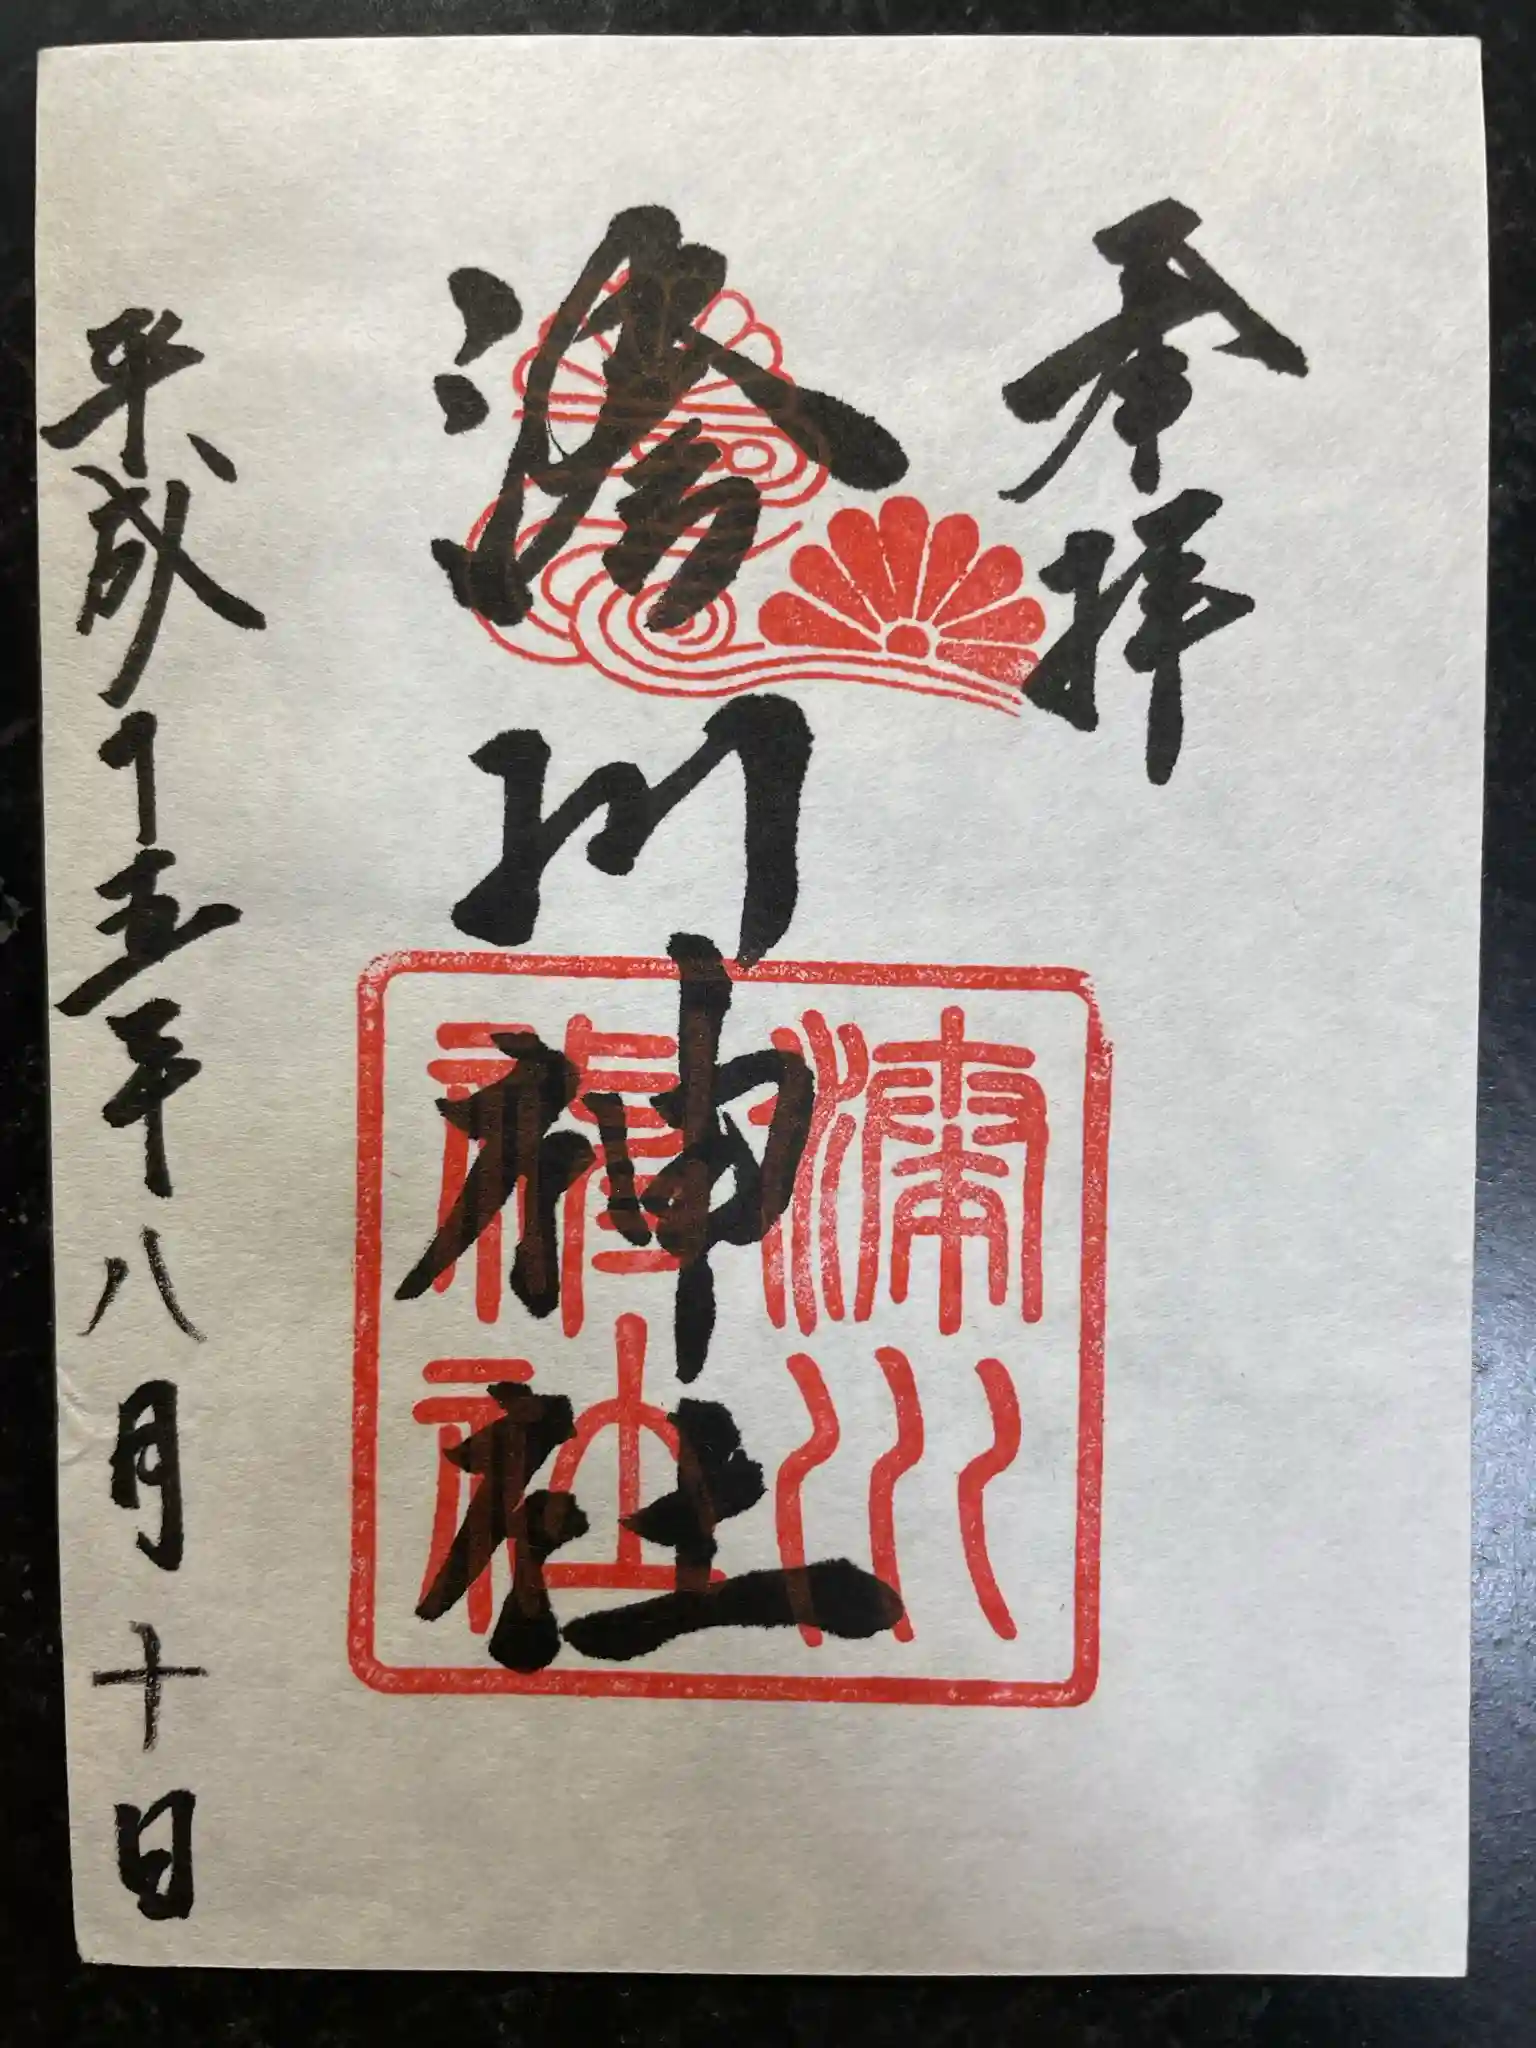 奉拝
湊川神社
平成十五年八月十日
湊川神社